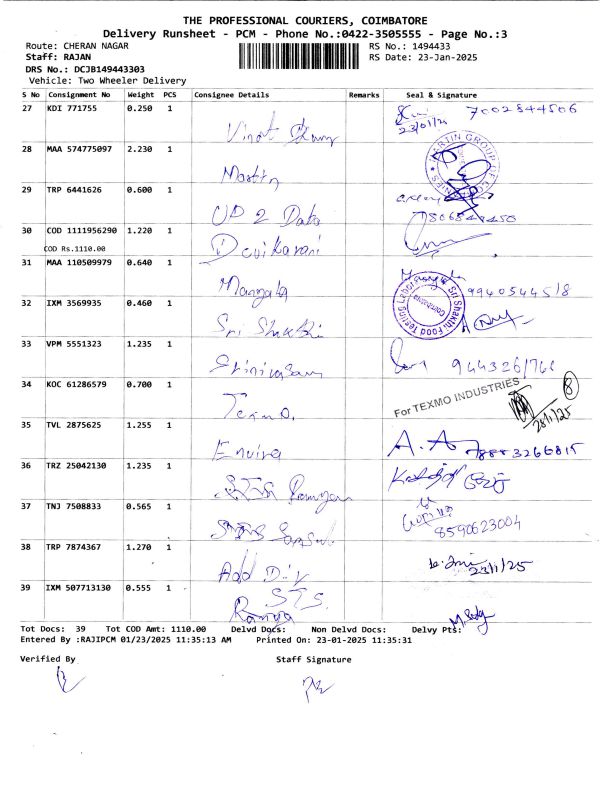 THE PROFESSIONAL COURIERS, COIMBATORE
Delivery Runsheet - PCM - Phone No.:0422-3505555 - Page No.:3
Route: CHERAN NAGAR RS No.: 1494433
Staff: RAJAN RS Date: 23-Jan-2025
DRS No.: DCJB149443303
Vehicle: Two Wheeler Delivery
S No Consignment No Weight PCS Consignee Details Remarks Seal & Signature
27 KDI 771755 0.250 1 7002844506
23/01/25
28 MAA 574775097 2.230 1 Martin MARTIN GROUP OF COMPANIES
29 TRP 6441626 0.600 1 UD 2 Data
30 COD 1111956290 1.220 1 Devikarani
COD Rs.1110.00
31 MAA 110509979 0.640 1 Mangala 9940544518
32 IXM 3569935 0.460 1 Sri Shakthi Sri Shakthi Food Testing Laboratory Coimbatore
33 VPM 5551323 1.235 1 Srinivasan
34 KOC 61286579 0.700 1 Texmo. For TEXMO INDUSTRIES 8
35 TVL 2875625 1.255 1 Envira A. A 7883266815
36 TRZ 25042130 1.235 1
37 TNJ 7508833 0.565 1 8590623004
38 TRP 7874367 1.270 1 Add Div
39 IXM 507713130 0.555 1 STS.
Ranga
Tot Docs: 39 Tot COD Amt: 1110.00 Delvd Docs: Non Delvd Docs: Delvy Pts:
Entered By :RAJIPCM 01/23/2025 11:35:13 AM Printed On: 23-01-2025 11:35:31
Verified By Staff Signature